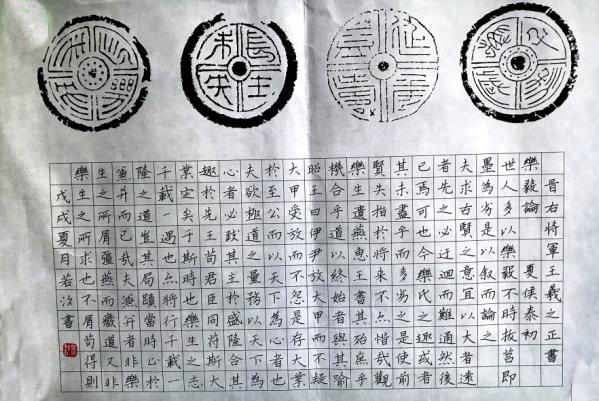 晉右將軍王羲之正書
樂毅論 夏侯泰初
世人多以樂毅不時拔莒即
墨為劣是以叙而論之
夫求古賢之意宜以大者遠
者先之必迂迴而難通然後
已焉可也今樂氏之趣或者
其未盡乎而多劣之是使前
賢失指於將來不亦惜哉觀
樂生遺燕惠王書其殆庶乎
機合乎道以終始者與其喻
昭王曰伊尹放大甲而不疑
大甲受放而不怨是存大業
於至公而以天下為心者也
夫欲極道之量務以天下為
心者必致其主於盛隆合其
趣於先王苟君臣同符斯大
業定矣于斯時也樂生之志
千載一遇也亦將行千載一
隆之道豈其局蹟當時止於
兼并而已哉夫兼并者非樂
生之所屑彊燕而廢道又非
樂生之所求也不屑苟得則
戊戌夏月若汐書